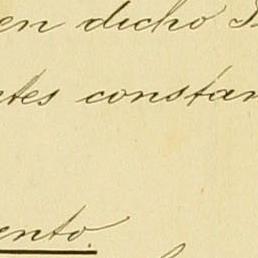 en dicho
ntes constan
ento.